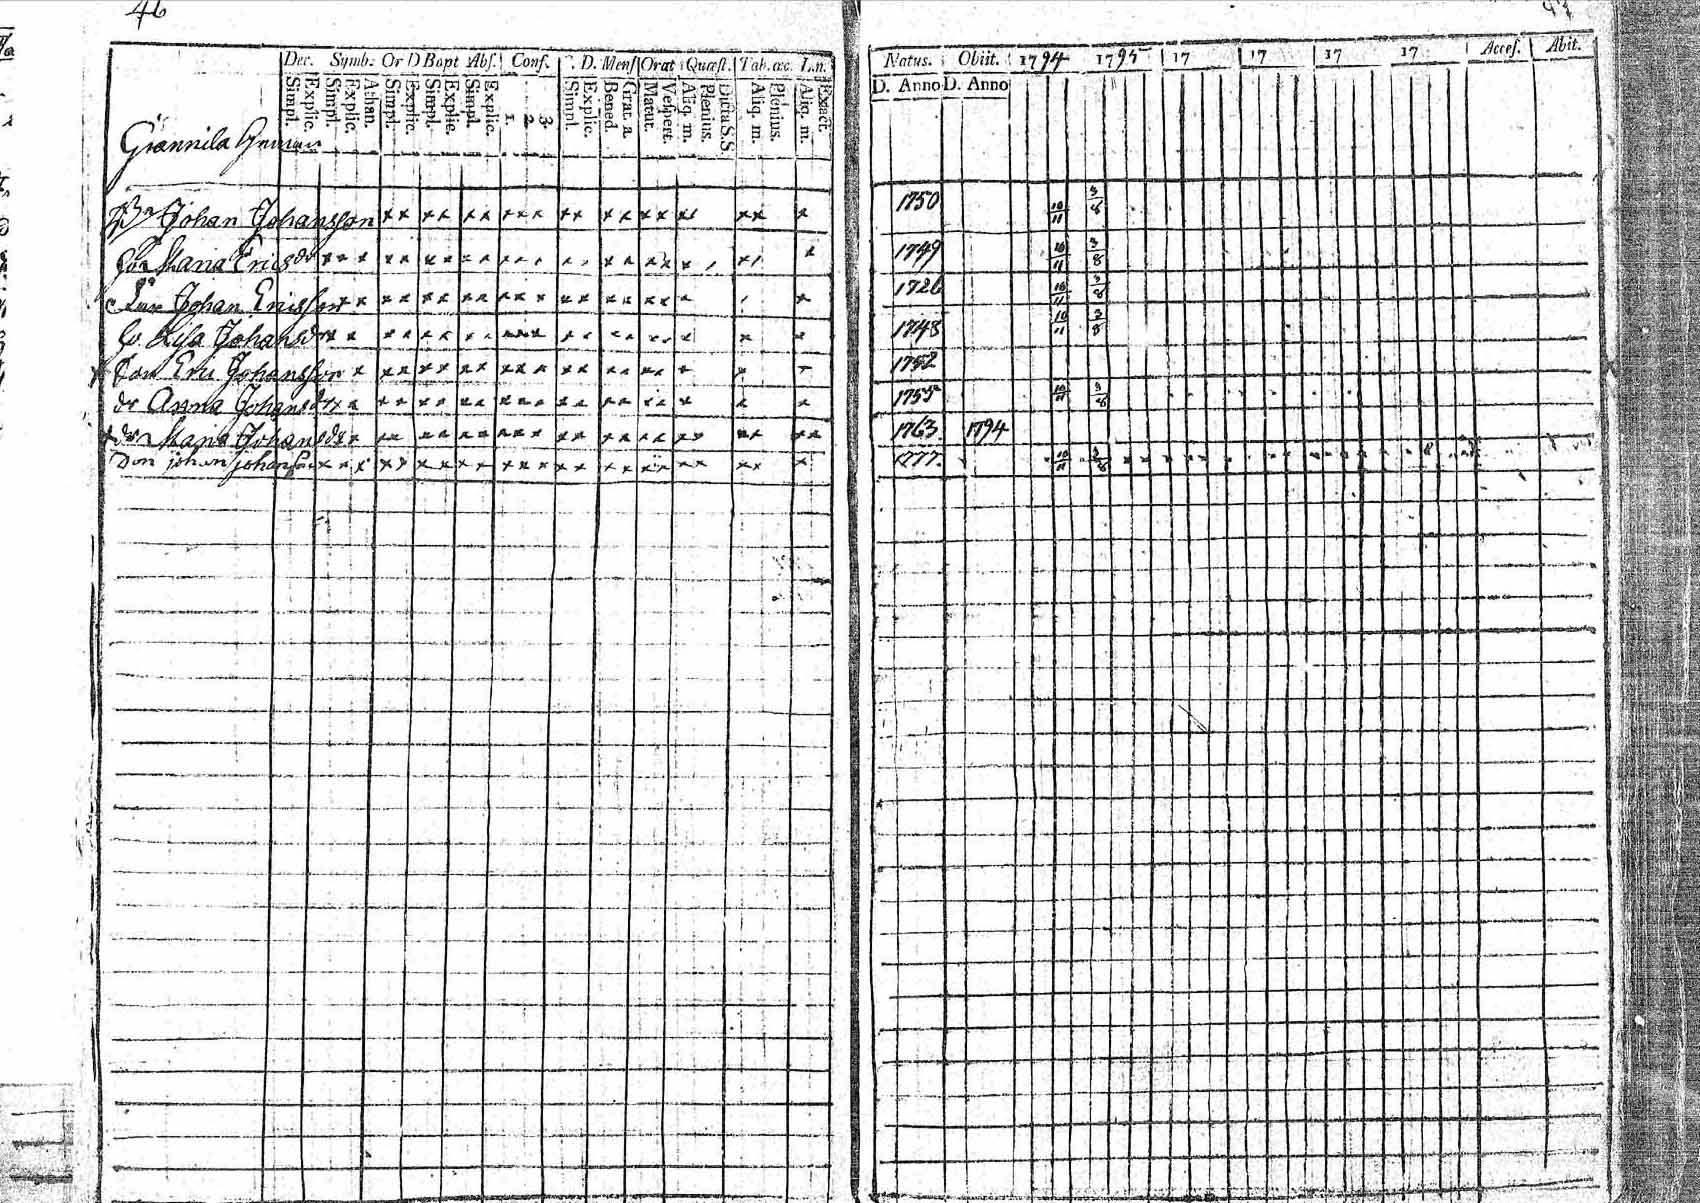 46
Dec. Symb. Or D Bapt Abs. Conf. D. Mens Orat Quæst. Tab. œc. L.n.
Simpl. Explic. Simpl. Explic. Athan. Simpl. Explic. Simpl. Explic. Simpl. Explic. 1. 2. 3. Simpl. Explic. Bened. Grat. a. Matut. Vespert. Aliq. m. Plenius. Dicta S.S. Aliq. m. Plenius. Aliq. m. Exact.
Johan Johansson
Maria Ericsdr
Johan Ericsson
Lisa Johansdr
Johansson
dr Anna Johansdr
dr Maria Johansdr
johan johansson
47
Natus. Obiit. 1794 1795 17 17 17 17 Acces. Abit.
D. Anno D. Anno
1750 10/11 3/8
1749 10/11 3/8
1726 10/11 3/8
1748 10/11 3/8
1752
1755 10/11 3/8
1763. 1794
1777. 10/11 3/8